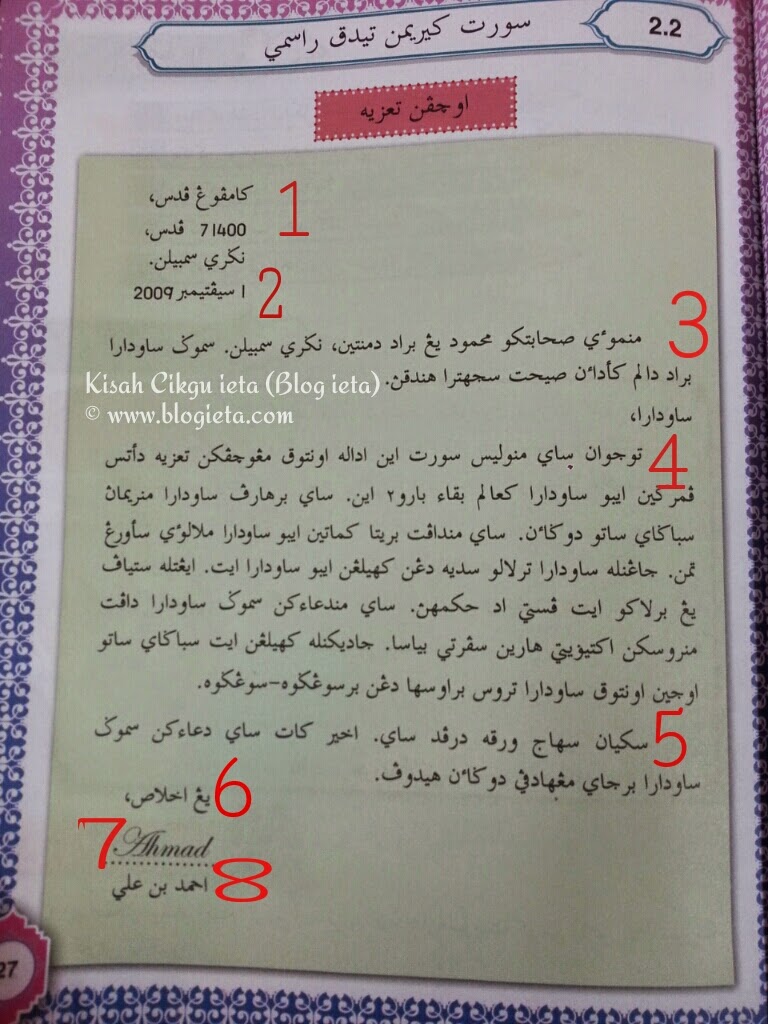 2.2
سورت كيريمن تيدق راسمي
اوچڤن تعزيه
كامڤوڠ ڤدس،
1
71400 ڤدس،
نݢري سمبيلن.
2
1 سيڤتيمبر 2009
3
منموءي صحابتكو محمود يڠ براد دمنتين، نݢري سمبيلن. سموݢ ساودارا
براد دالم كأداءن صيحت سجهترا هندقڽ.
Kisah Cikgu ieta (Blog ieta)
© www.blogieta.com
ساودارا،
4
توجوان ساي منوليس سورت اين اداله اونتوق مڠوچڤكن تعزيه دأتس
ڤمرݢين ايبو ساودارا كعالم بقاء بارو٢ اين. ساي برهارڤ ساودارا منريماڽ
سباݢاي ساتو دوݢاءن. ساي منداڤت بريتا كماتين ايبو ساودارا ملالوءي سأورڠ
تمن. جاڠنله ساودارا ترلالو سديه دڠن كهيلڠن ايبو ساودارا ايت. ايڠتله ستياڤ
يڠ برلاكو ايت ڤستي اد حكمهڽ. ساي مندعاءكن سموݢ ساودارا داڤت
منروسكن اكتيۏيتي هارين سڤرتي بياسا. جاديكنله كهيلڠن ايت سباݢاي ساتو
اوجين اونتوق ساودارا تروس براوسها دڠن برسوڠݢوه-سوڠݢوه.
5
سكيان سهاج ورقه درڤد ساي. اخير كات ساي دعاءكن سموݢ
ساودارا برجاي مڠهادڤي دوݢاءن هيدوڤ.
6
يڠ اخلاص،
7
Ahmad
8
احمد بن علي
27